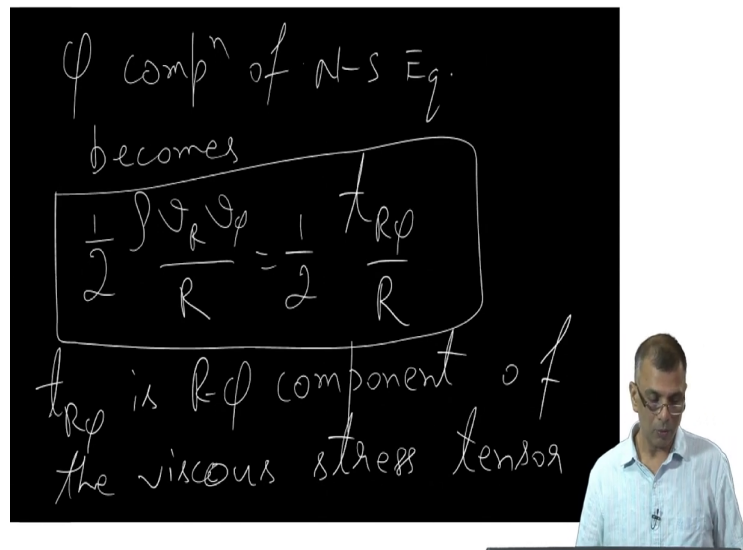 φ compⁿ of N-S Eq.
becomes
1/2 ρ ϑ_R ϑ_φ / R = 1/2 t_Rφ / R
t_Rφ is R-φ component of
the viscous stress tensor